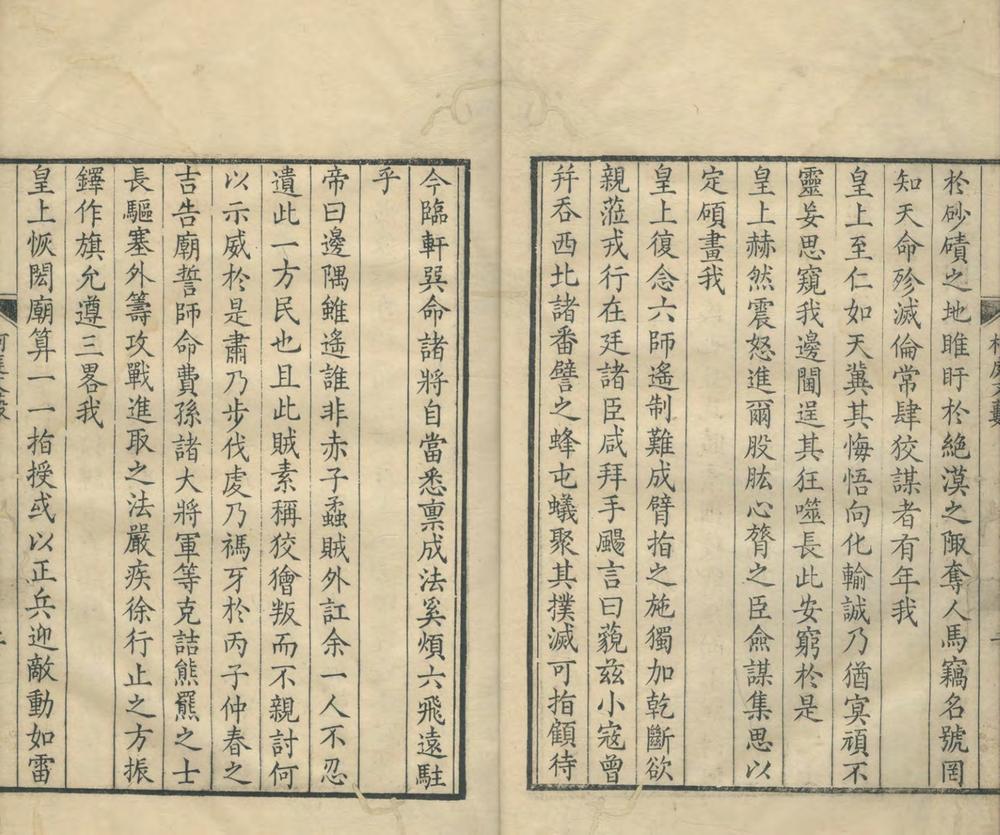 於砂磧之地睢盱於絶漠之陬奪人馬竊名號罔
知天命殄滅倫常肆狡謀者有年我
皇上至仁如天冀其悔悟向化輸誠乃猶寞頑不
靈妄思窺我邊閫逞其狂噬長此安窮於是
皇上赫然震怒進爾股肱心膂之臣僉謀集思以
定碩畫我
皇上復念六師遙制難成臂指之施獨加乾斷欲
親蒞戎行在廷諸臣咸拜手颺言曰藐兹小寇曾
幷呑西北諸番譬之蜂屯蟻聚其撲滅可指顧待
今臨軒巽命諸將自當悉禀成法奚煩六飛遠駐
乎
帝曰邊隅雖遙誰非赤子蟊賊外訌余一人不忍
遺此一方民也且此賊素稱狡獪叛而不親討何
以示威於是肅乃步伐虔乃禡牙於丙子仲春之
吉告廟誓師命費孫諸大將軍等克詰熊羆之士
長驅塞外籌攻戰進取之法嚴疾徐行止之方振
鐸作旗允遵三畧我
皇上恢閎廟算一一指授或以正兵迎敵動如雷